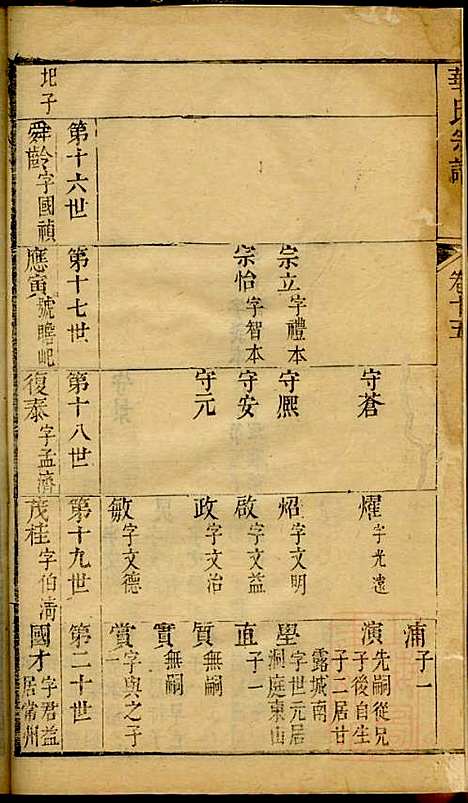 華氏宗譜
卷十五
浦 子一
守蒼
燿 字光遠
演 先嗣從兄子後自生子二居甘露城南
宗立 字禮本
守熈
炤 字文明
學 字世元居洞庭東山
宗怡 字智本
守安
啟 字文益
直 子一
守元
政 字文治
質 無嗣
實 無嗣
敏 字文德
賞 字與之子一
第十六世
第十七世
第十八世
第十九世
第二十世
圯子
舜齡 字國禎
應寅 號瞻屺
復泰 字孟濟
茂桂 字伯淸
國才 字君益居常州